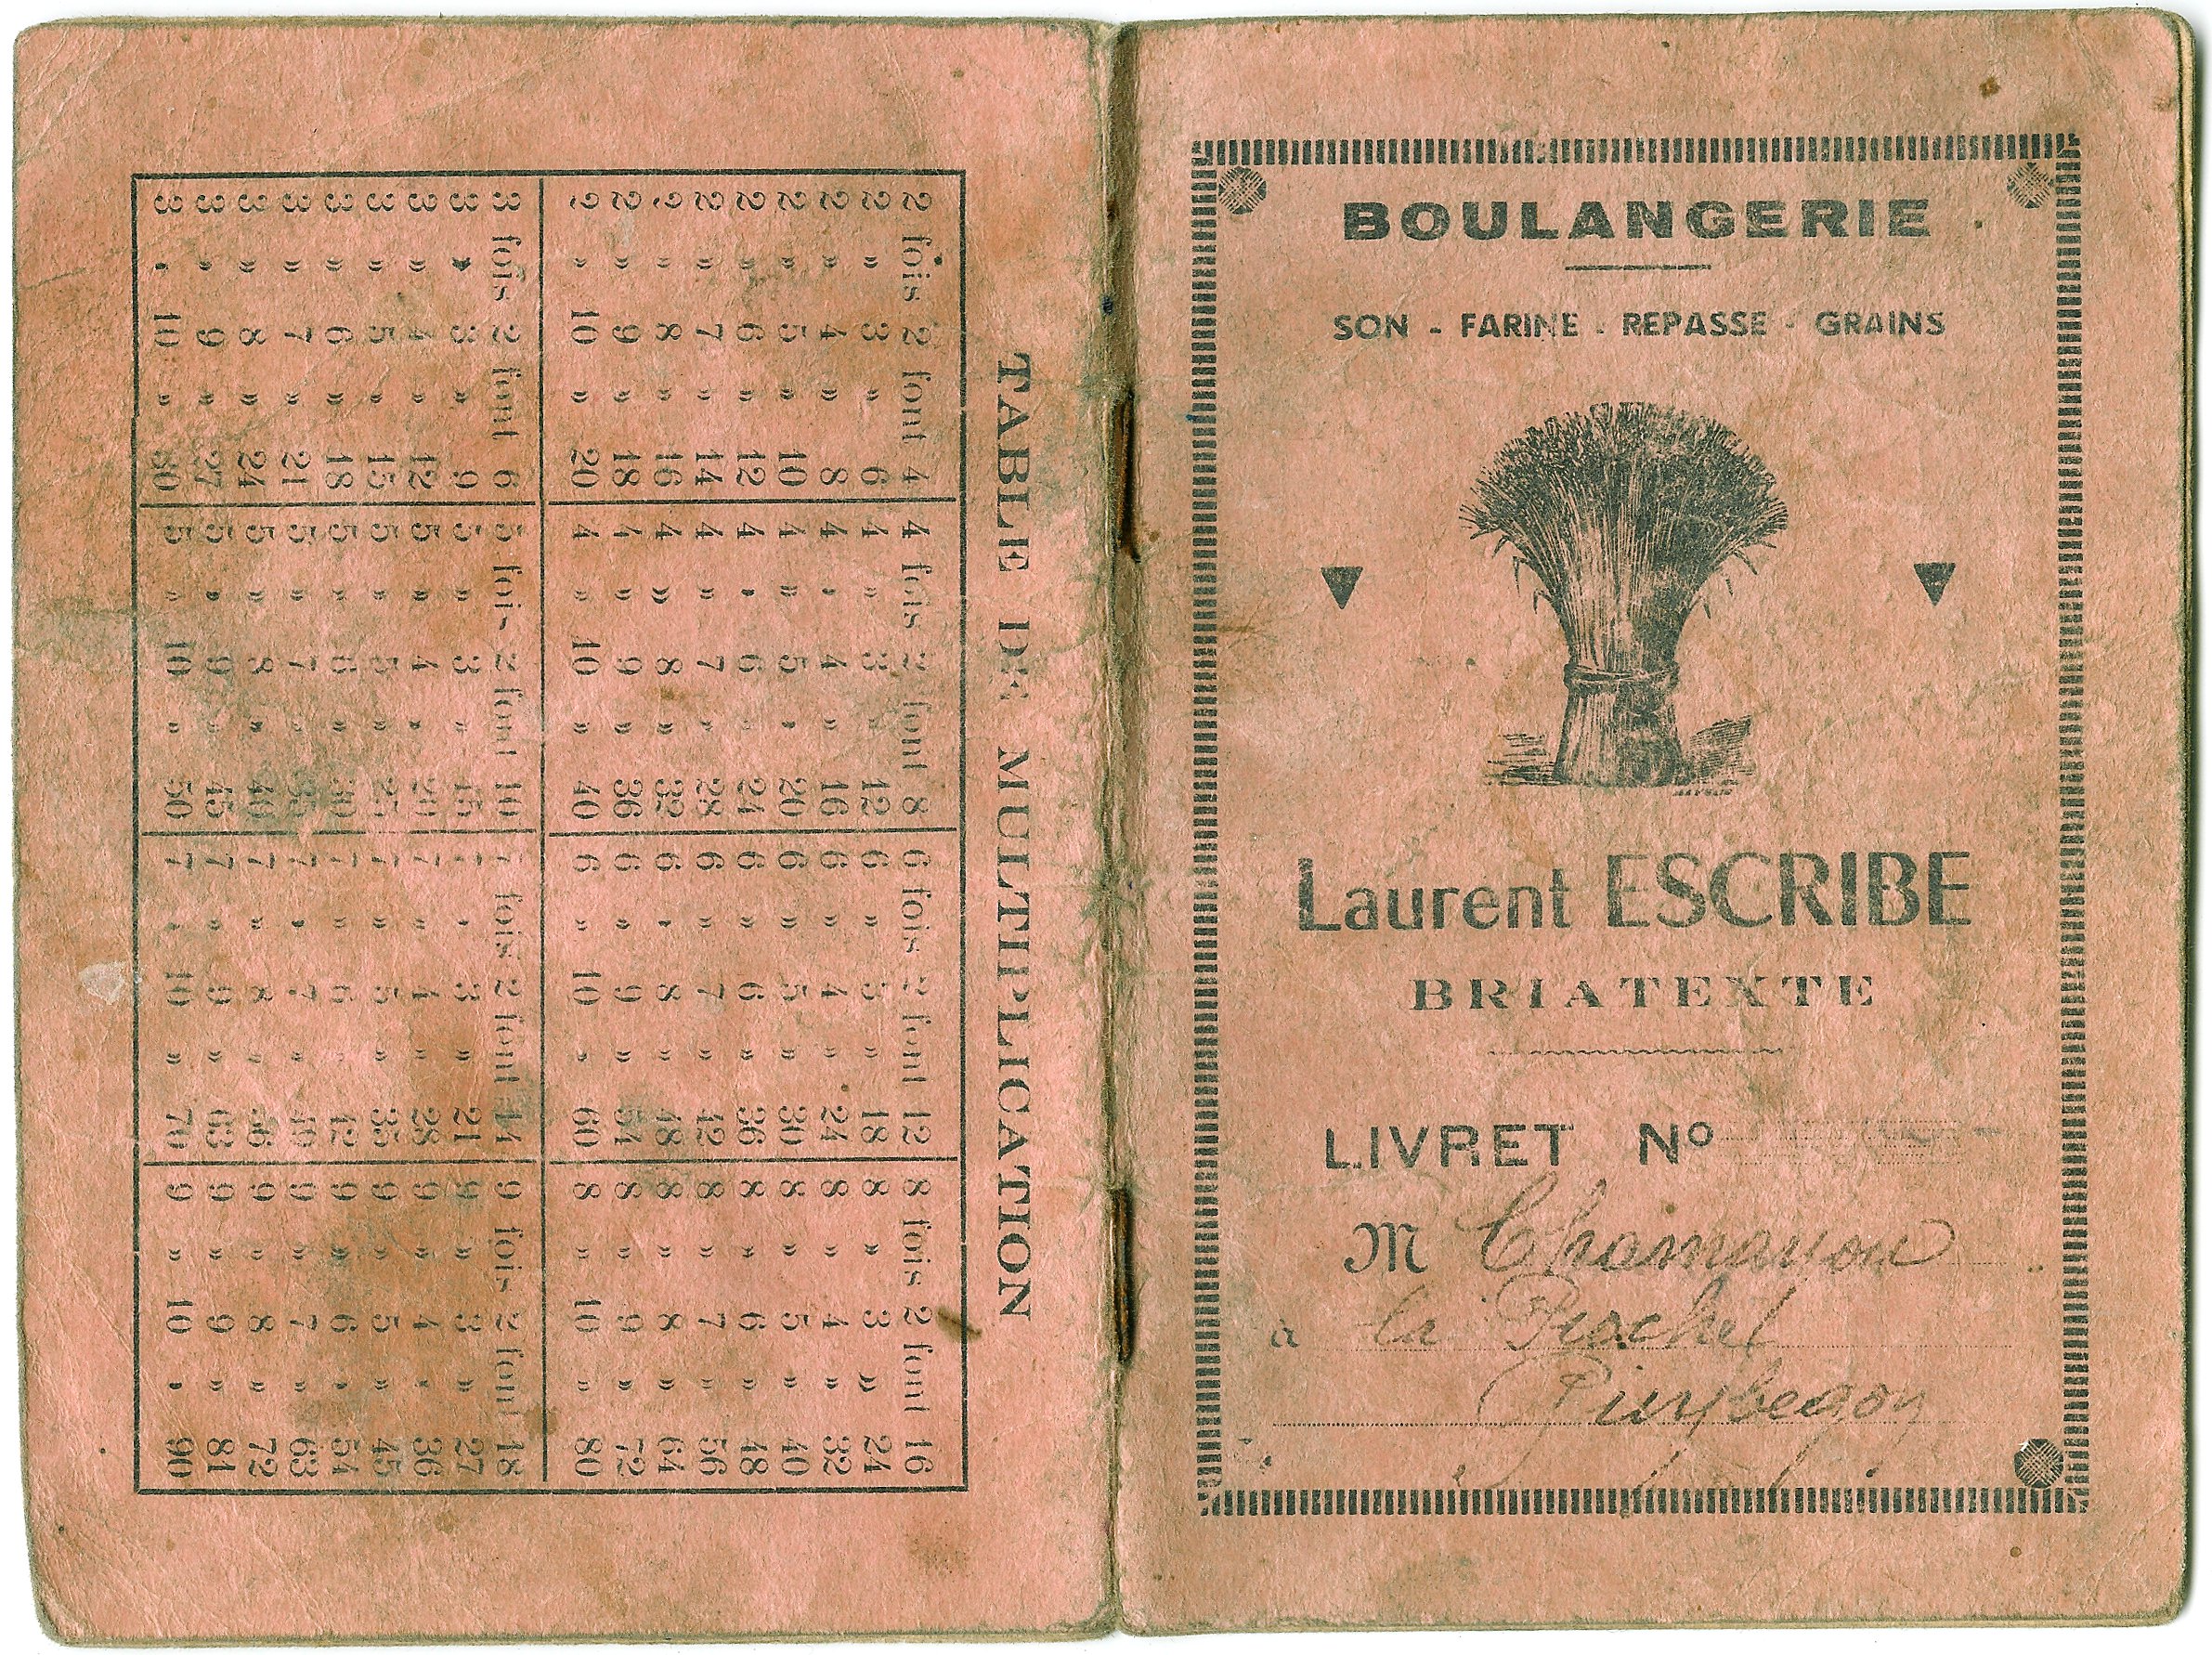 TABLE DE MULTIPLICATION
2 fois 2 font 4 4 fois 2 font 8 6 fois 2 font 12 8 fois 2 font 16
2 » 3 » 6 4 » 3 » 12 6 » 3 » 18 8 » 3 » 24
2 » 4 » 8 4 » 4 » 16 6 » 4 » 24 8 » 4 » 32
2 » 5 » 10 4 » 5 » 20 6 » 5 » 30 8 » 5 » 40
2 » 6 » 12 4 » 6 » 24 6 » 6 » 36 8 » 6 » 48
2 » 7 » 14 4 » 7 » 28 6 » 7 » 42 8 » 7 » 56
2 » 8 » 16 4 » 8 » 32 6 » 8 » 48 8 » 8 » 64
2 » 9 » 18 4 » 9 » 36 6 » 9 » 54 8 » 9 » 72
2 » 10 » 20 4 » 10 » 40 6 » 10 » 60 8 » 10 » 80
3 fois 2 font 6 5 fois 2 font 10 7 fois 2 font 14 9 fois 2 font 18
3 » 3 » 9 5 » 3 » 15 7 » 3 » 21 9 » 3 » 27
3 » 4 » 12 5 » 4 » 20 7 » 4 » 28 9 » 4 » 36
3 » 5 » 15 5 » 5 » 25 7 » 5 » 35 9 » 5 » 45
3 » 6 » 18 5 » 6 » 30 7 » 6 » 42 9 » 6 » 54
3 » 7 » 21 5 » 7 » 35 7 » 7 » 49 9 » 7 » 63
3 » 8 » 24 5 » 8 » 40 7 » 8 » 56 9 » 8 » 72
3 » 9 » 27 5 » 9 » 45 7 » 9 » 63 9 » 9 » 81
3 » 10 » 30 5 » 10 » 50 7 » 10 » 70 9 » 10 » 90
BOULANGERIE
SON - FARINE - REPASSE - GRAINS
Laurent ESCRIBE
BRIATEXTE
LIVRET No
M Chamayou
à la
Puybegon